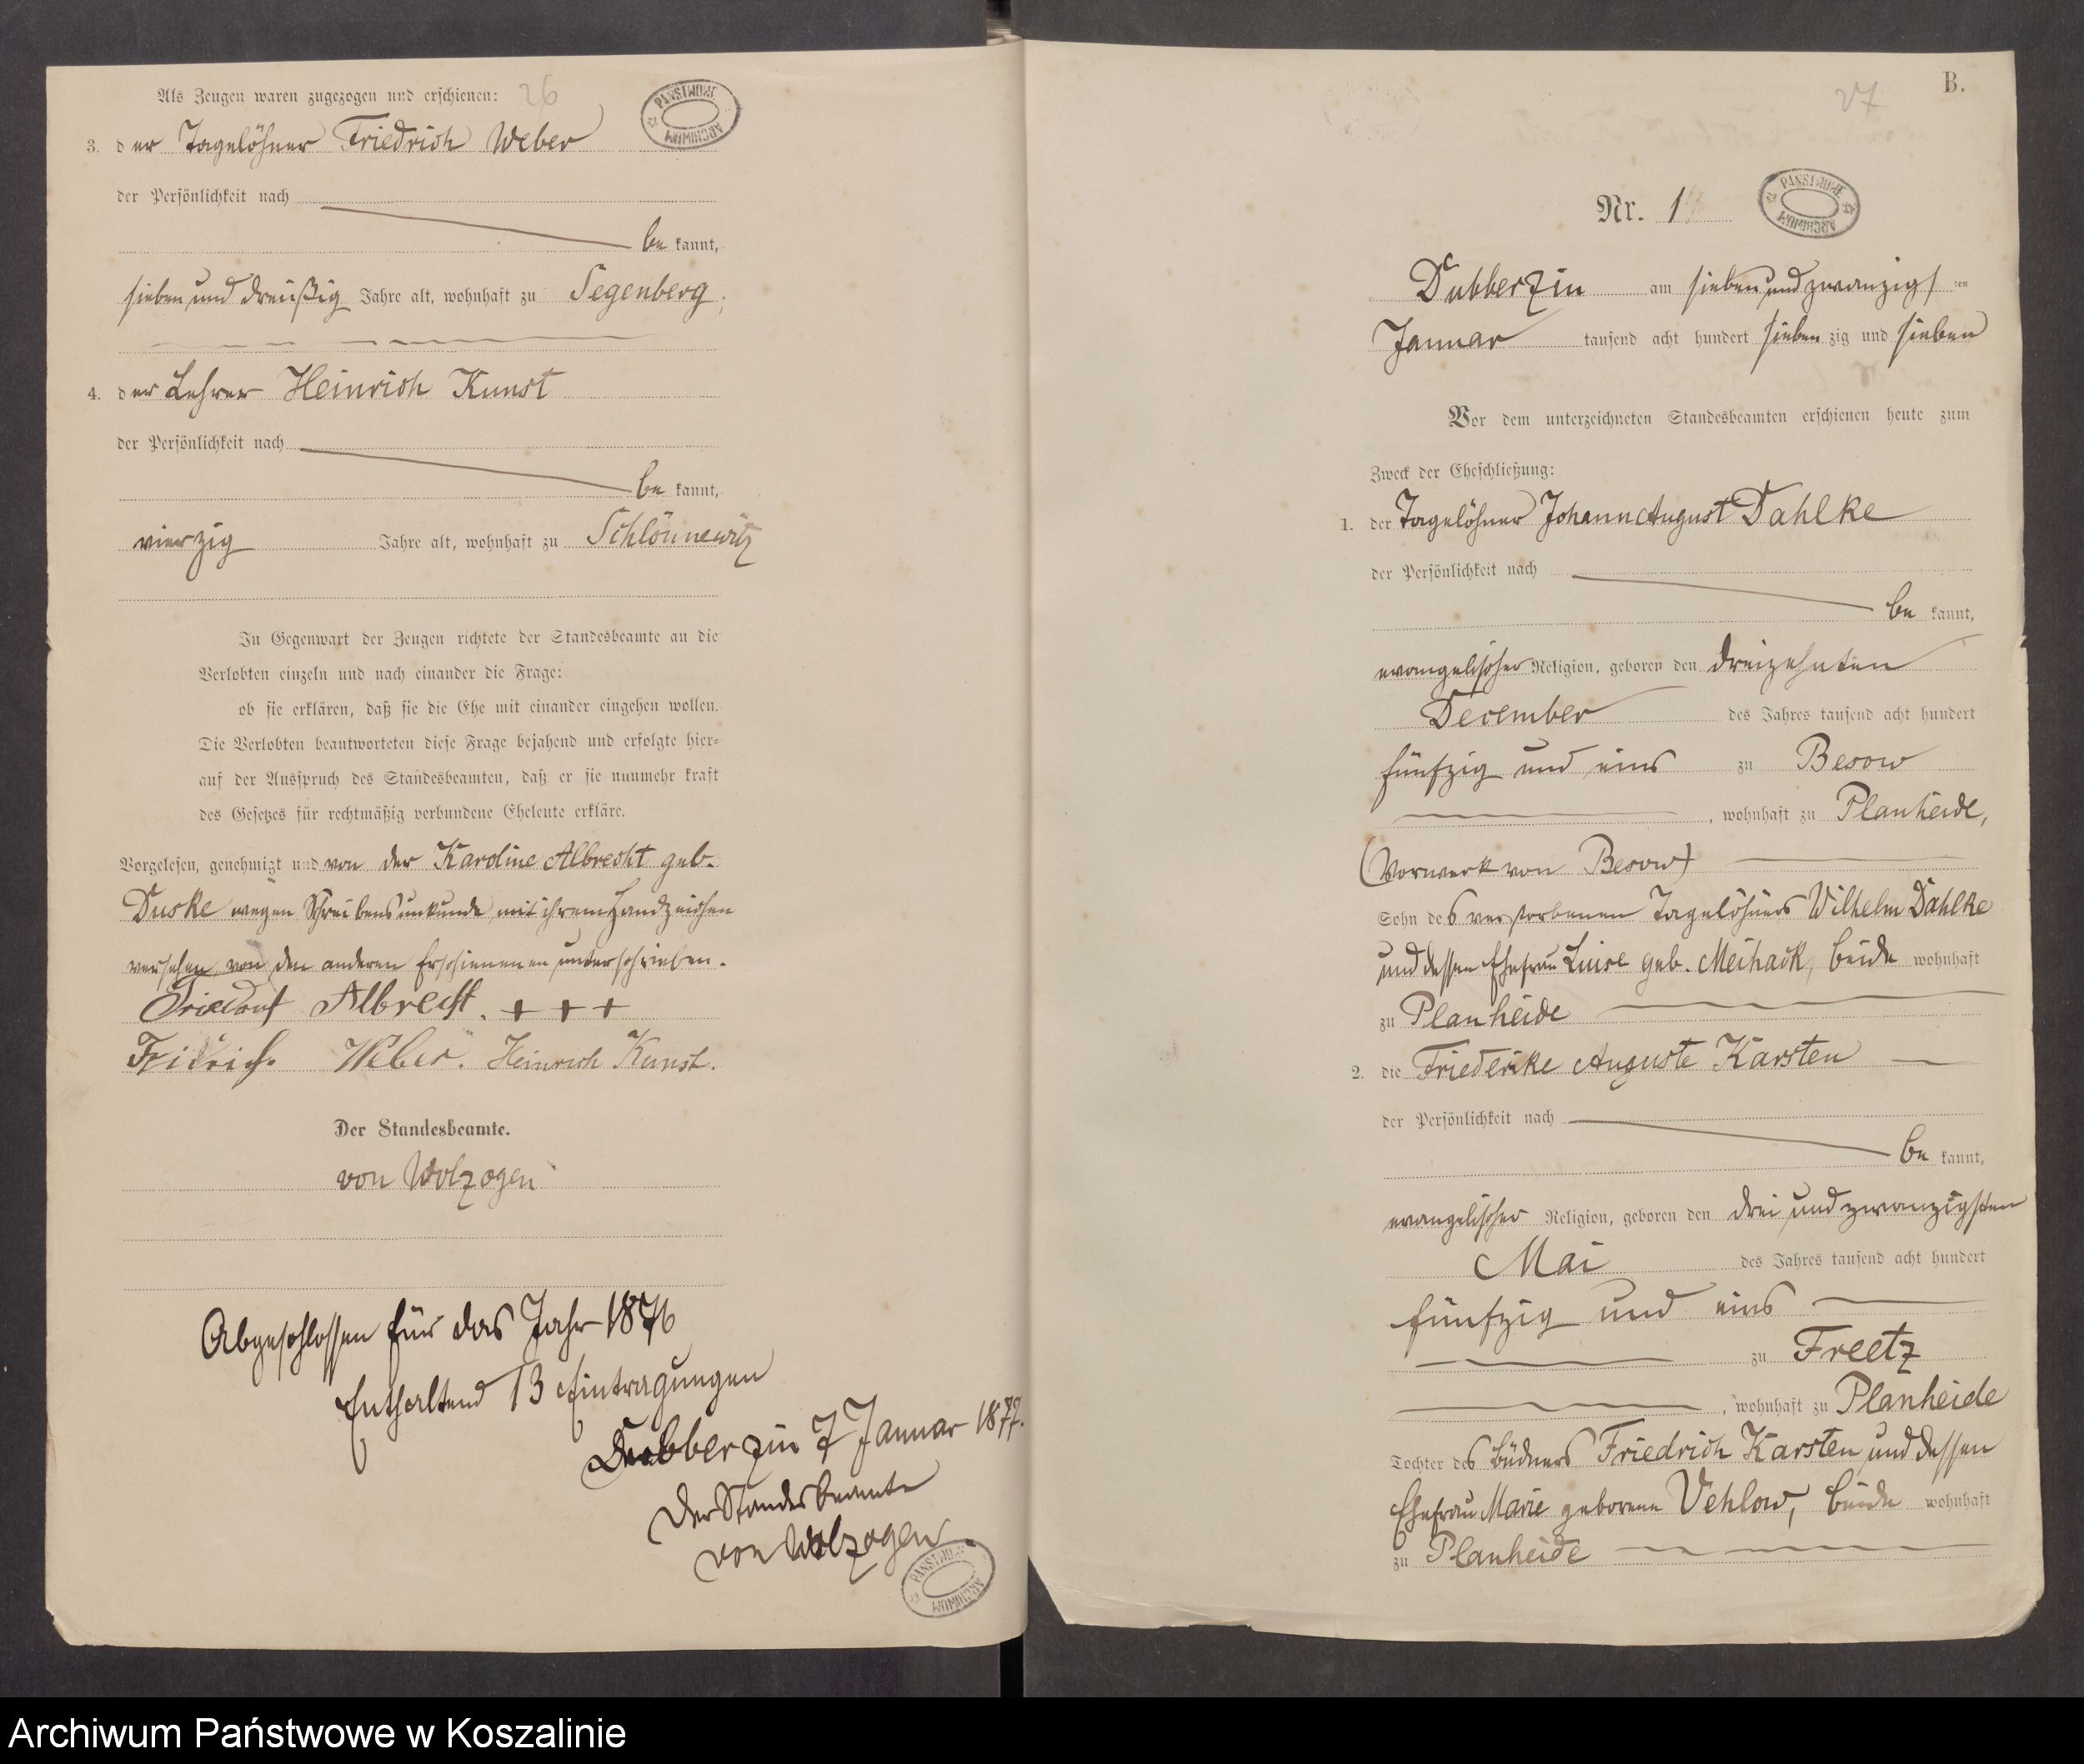 Als Zeugen waren zugezogen und erschienen: 26
PAŃSTWOWE ARCHIWUM
3. der Tagelöhner Friedrich Weber
der Persönlichkeit nach
be kannt,
sieben und dreißig Jahre alt, wohnhaft zu Segenberg.
4. der Lehrer Heinrich Kunst
der Persönlichkeit nach
be kannt,
vierzig Jahre alt, wohnhaft zu Schlönnewitz
In Gegenwart der Zeugen richtete der Standesbeamte an die
Verlobten einzeln und nach einander die Frage:
ob sie erklären, daß sie die Ehe mit einander eingehen wollen.
Die Verlobten beantworteten diese Frage bejahend und erfolgte hier=
auf der Ausspruch des Standesbeamten, daß er sie nunmehr kraft
des Gesetzes für rechtmäßig verbundene Eheleute erkläre.
Vorgelesen, genehmigt und von der Karoline Albrecht geb.
Duske wegen Schreibensunkunde mit ihrem Handzeichen
versehen von den anderen Erschienenen unterschrieben.
Albrecht. + + +
Fridrich. Weber. Heinrich Kunst.
Der Standesbeamte.
von Wolzogen
Abgeschlossen für das Jahr 1876
Enthaltend 13 Eintragungen
Dubberzin 7 Januar 1877.
Der Standesbeamte
von Wolzogen
PAŃSTWOWE ARCHIWUM
B.
27
Nr. 1
PAŃSTWOWE ARCHIWUM
Dubberzin am sieben und zwanzigsten
Januar tausend acht hundert siebenzig und sieben
Vor dem unterzeichneten Standesbeamten erschienen heute zum
Zweck der Eheschließung:
1. der Tagelöhner Johann August Dahlke
der Persönlichkeit nach
be kannt,
evangelischer Religion, geboren den dreizehnten
December des Jahres tausend acht hundert
fünfzig und eins zu Besow
, wohnhaft zu Planheide,
(Vorwerk von Besow)
Sohn des verstorbenen Tagelöhners Wilhelm Dahlke
und dessen Ehefrau Luise geb. Meihack, beide wohnhaft
zu Planheide
2. die Friederike Auguste Karsten
der Persönlichkeit nach
be kannt,
evangelischer Religion, geboren den drei und zwanzigsten
Mai des Jahres tausend acht hundert
fünfzig und eins
zu Freetz
, wohnhaft zu Planheide
Tochter des Büdners Friedrich Karsten und dessen
Ehefrau Marie geborene Vehlow, beide wohnhaft
zu Planheide
Archiwum Państwowe w Koszalinie